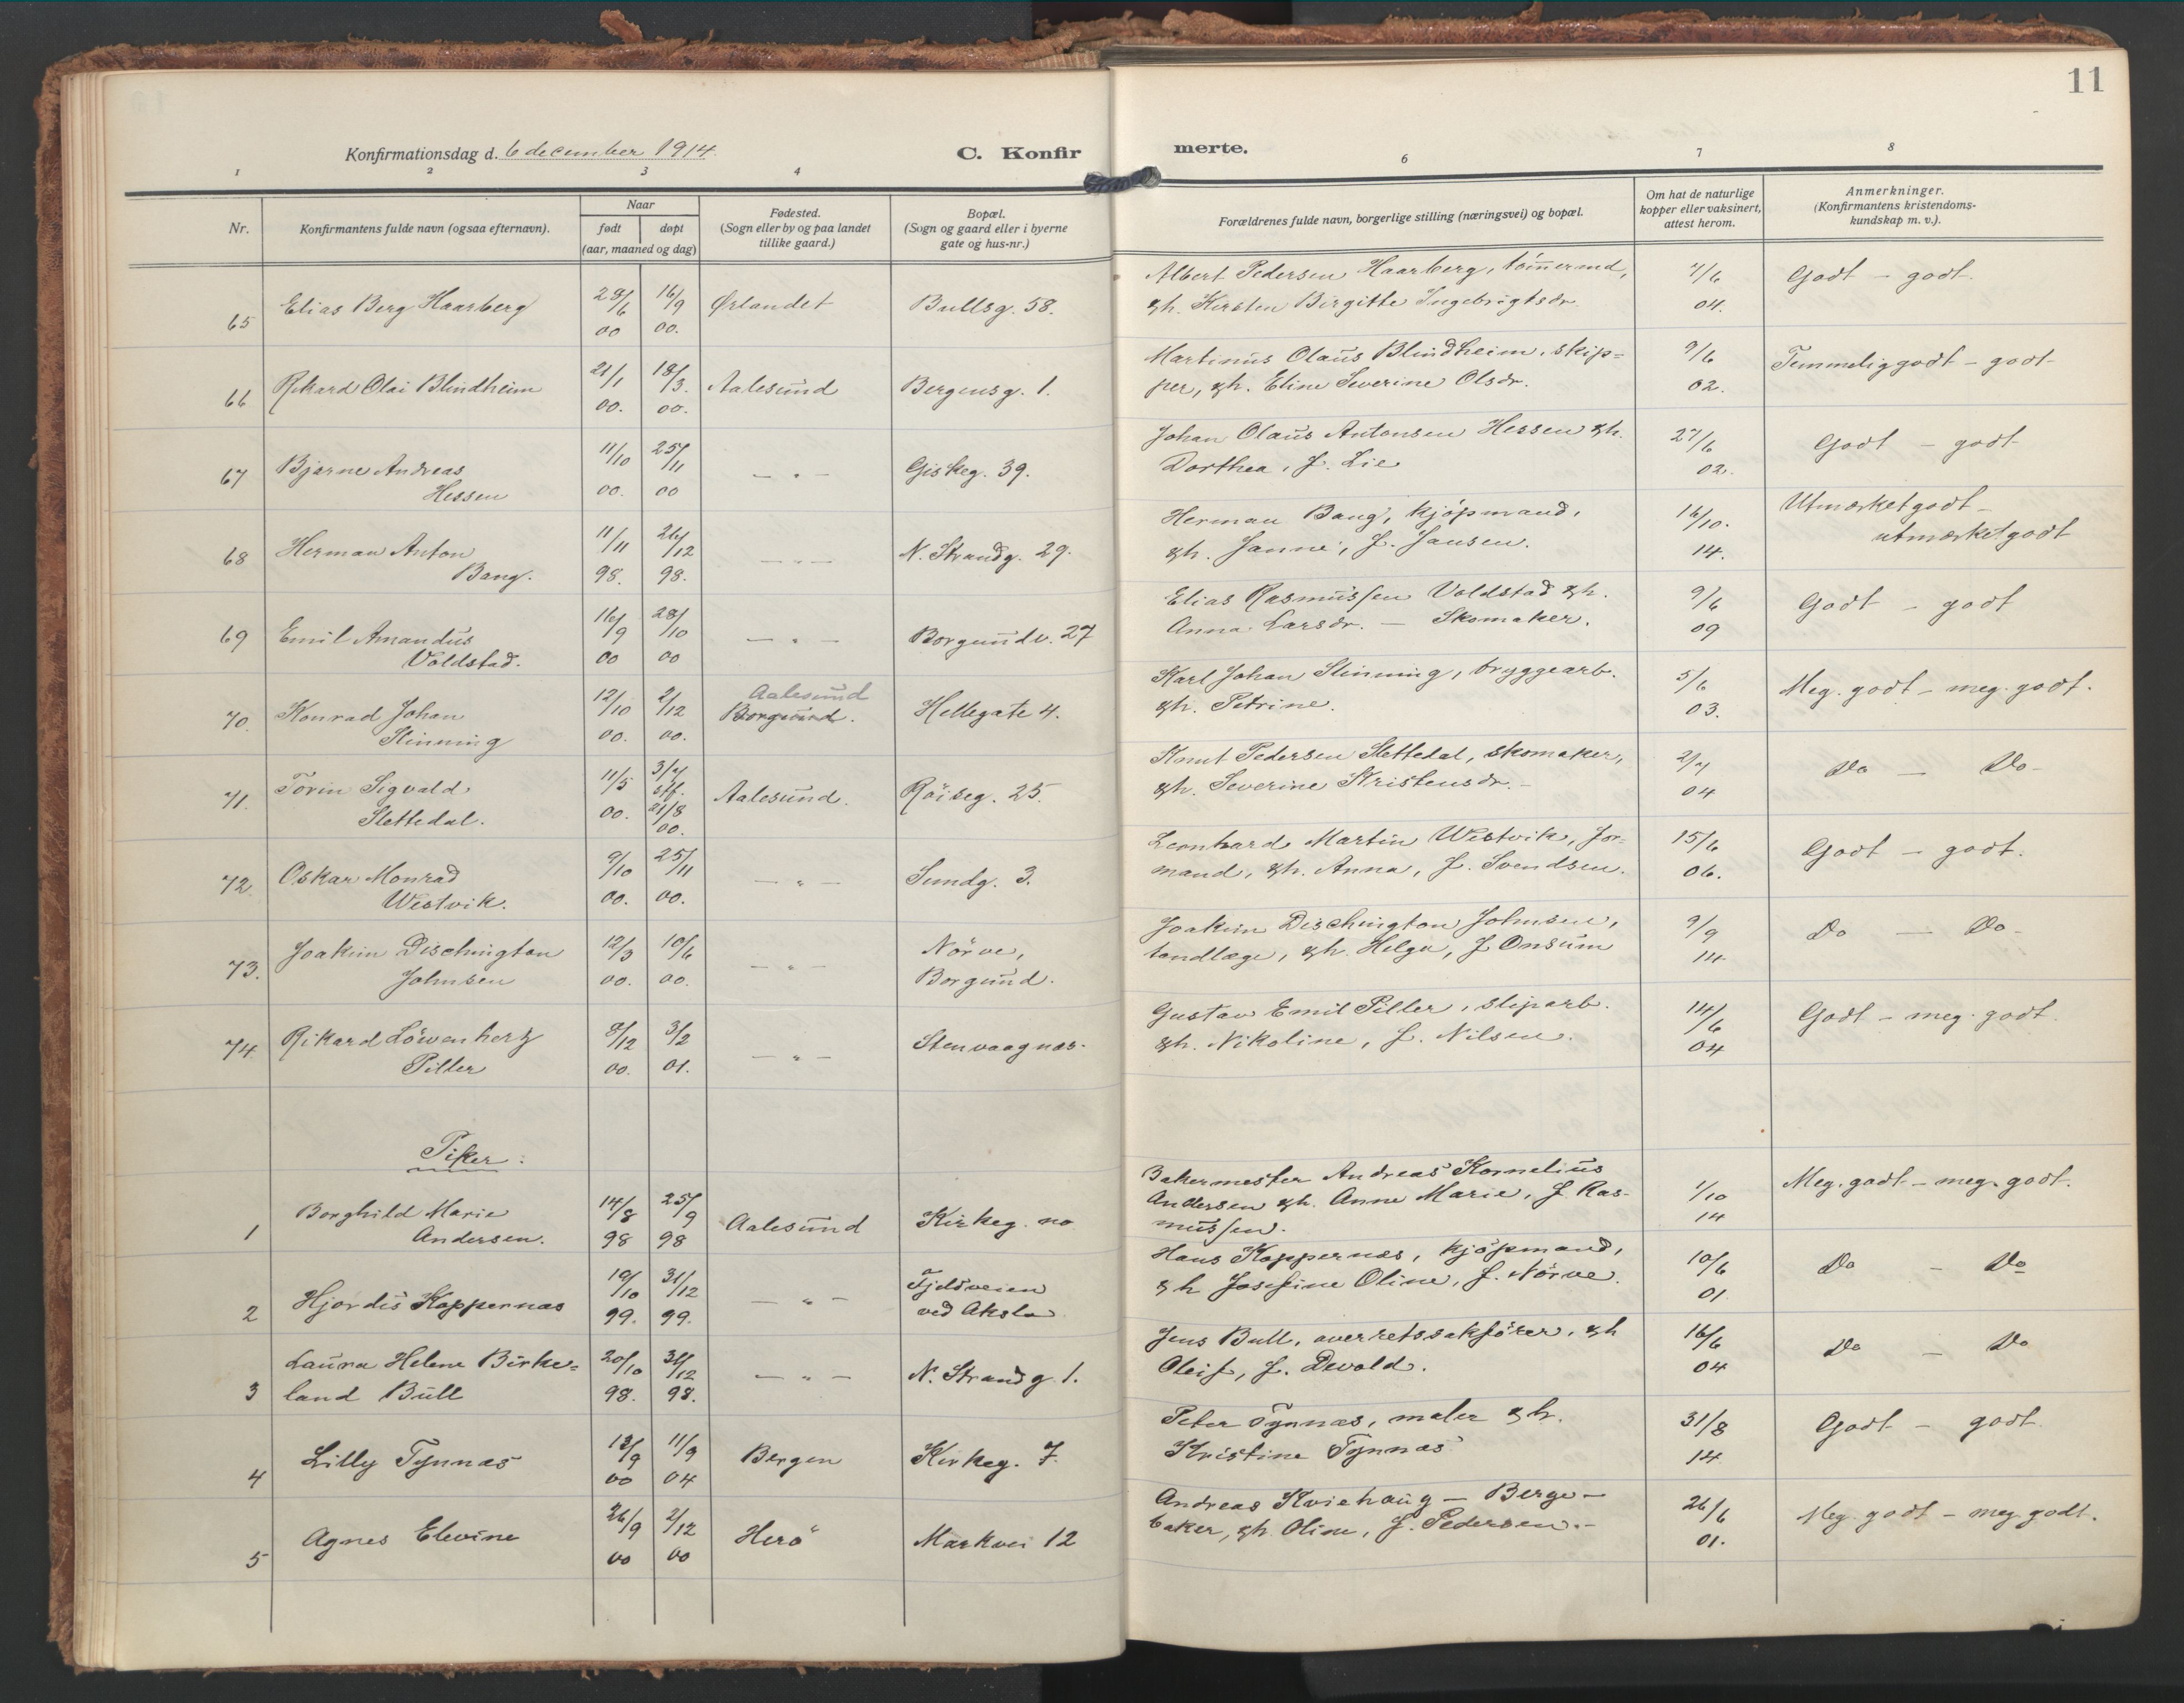 11
Konfirmationsdag d. 6 december 1914.
C. Konfir
merte.
1 2 3 4 6 7 8
Nr.
Konfirmantens fulde navn (ogsaa efternavn).
Naar
født døpt
(aar, maaned og dag)
Fødested.
(Sogn eller by og paa landet
tillike gaard.)
Bopæl.
(Sogn og gaard eller i byerne
gate og hus-nr.)
Forældrenes fulde navn, borgerlige stilling (næringsvei) og bopæl.
Om hat de naturlige
kopper eller vaksinert,
attest herom.
Anmerkninger.
(Konfirmantens kristendoms-
kundskap m. v.).
Albert Pedersen Haarberg, tömmermd, 7/6 Godt - godt.
65 Elias Berg Haarberg 28/6 16/9 Ørlandet Bullsg. 58. &h. Kirsten Birgitte Ingebrigtsdr. 04.
00 00.
Martinus Olaus Blindheim, skip= 9/6 Temmelig godt - godt
66 Rikard Olai Blindheim 21/1 18/3. Aalesund Bergensg. 1. per, &h. Eline Severine Olsdr. 02.
00. 00.
Johan Olaus Antonsen Hessen &h. 27/6 Godt - godt
67 Bjarne Andreas 11/10 25/11 - " - Giskeg. 39. Dorthea, f. Lie 02.
Hessen 00. 00
Herman Bang, kjöpmand, 16/10. Utmærket godt -
68 Herman Anton 11/11 26/12 - " - N. Strandg. 29. &h. Janne, f. Jansen. 14. utmærket godt
Bang. 98. 98.
Elias Rasmussen Voldstad &h. 9/6 Godt - godt
69 Emil Amandus 16/9 28/10 - " - Borgundv. 27 Anna Larsdr. - Skomaker. 09
Voldstad. 00 00
Aalesund
Karl Johan Slinning, bryggearb. 5/6 Meg. godt - meg. godt.
70. Konrad Johan 12/10 2/12 Borgund. Hellegate 4. &h. Petrine. 03.
Slinning 00. 00.
Knut Pedersen Slettedal, skomaker, 2/7 Do - Do
71. Torin Sigvald 11/5 3/7 stf. Aalesund. Röiseg. 25. &h. Severine Kristensdr. - 04
Slettedal. 00. 21/8 00.
Leonhard Martin Westvik, for- 15/6 Godt - godt.
72. Oskar Monrad 9/10 25/11 - " - Sundg. 3. mand, &h. Anna, f. Svendsen. 06.
Westvik. 00. 00.
Joakim Dischington Johnsen, 9/9 Do - Do
73. Joakim Dischington 12/3 10/6 - " - Nörve, tandlæge, &h. Helga, f. Onsum 14
Johnsen 00. 00. Borgund.
Gustav Emil Pilter, sliparb. 14/6 Godt - meg. godt.
74 Rikard Löwenhertz 8/12 3/2 - " - Stenvaagnes. &h. Nikoline, f. Nilsen. 04
Pilter 00. 01.
Piker.
Bakermester Andreas Kornelius
1 Borghild Marie 14/8 25/9 Aalesund Kirkeg. no Andersen &h. Anne Marie, f. Ras- 1/10 Meg. godt - meg. godt.
Andersen. 98 98 mussen. 14
Hans Koppernæs, kjöpmand, 10/6 Do - Do
2 Hjordis Koppernæs 19/10 31/12 - " - Fjeldveien &h Josefine Oline, f. Nörve. 01.
99. 99. ved Aksla
Jens Bull, overretssakförer, &h 16/6 Do - Do
3 Laura Helene Birke= 20/10 31/12 - " - N. Strandg 1. Oleif, f. Devold. 04
land Bull 98. 98.
Peter Tynnæs, maler &h. 31/8 Godt - godt
4 Lilly Tynnæs 12/9 11/9 Bergen Kirkeg. 7. Kristine Tynnæs 14
00 04
Andreas Kviehaug - Berge- 26/6 Meg. godt - meg godt.
5 Agnes Elevine 26/9 2/12 Herö Markvei 12 baker, &h. Oline, f. Pedersen. - 01.
00 00